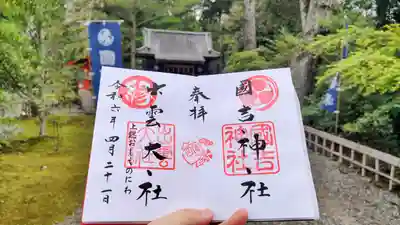 國吉神社
奉拝
出雲大社
上総おもちのにわ
令和六年四月二十一日
國吉神社